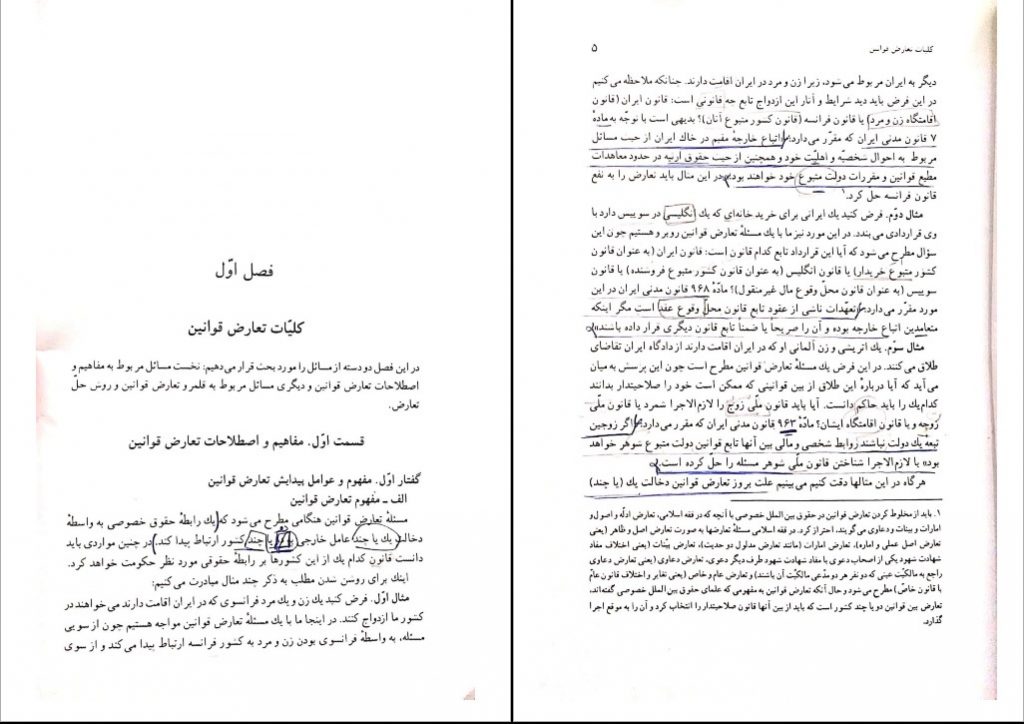 فصل اوّل
کلیّات تعارض قوانین
در این فصل دو دسته از مسائل را مورد بحث قرار می‌دهیم: نخست مسائل مربوط به مفاهیم و
اصطلاحات تعارض قوانین و دیگری مسائل مربوط به قلمرو تعارض قوانین و روش حلّ
تعارض.
قسمت اوّل. مفاهیم و اصطلاحات تعارض قوانین
گفتار اوّل. مفهوم و عوامل پیدایش تعارض قوانین
الف ـ مفهوم تعارض قوانین
مسئلهٔ تعارض قوانین هنگامی مطرح می‌شود که یك رابطهٔ حقوق خصوصی به واسطهٔ
دخالت یك یا چند عامل خارجی به دو یا چند کشور ارتباط پیدا کند. در چنین مواردی باید
دانست قانون کدام یك از این کشورها بر رابطهٔ حقوقی مورد نظر حکومت خواهد کرد.
اینك برای روشن شدن مطلب به ذکر چند مثال مبادرت می‌کنیم:
مثال اوّل. فرض کنید یك زن و یك مرد فرانسوی که در ایران اقامت دارند می‌خواهند در
کشور ما ازدواج کنند. در اینجا ما با یك مسئلهٔ تعارض قوانین مواجه هستیم چون از سویی
مسئله، به واسطهٔ فرانسوی بودن زن و مرد به کشور فرانسه ارتباط پیدا می‌کند و از سوی
کلیات تعارض قوانین ۵
دیگر به ایران مربوط می‌شود، زیرا زن و مرد در ایران اقامت دارند. چنانکه ملاحظه می‌کنیم
در این فرض باید دید شرایط و آثار این ازدواج تابع چه قانونی است: قانون ایران (قانون
اقامتگاه زن و مرد) یا قانون فرانسه (قانون کشور متبوع آنان)؟ بدیهی است با توجّه به مادهٔ
۷ قانون مدنی ایران که مقرّر می‌دارد: «اتباع خارجهٔ مقیم در خاك ایران از حیث مسائل
مربوط به احوال شخصیّه و اهلیّت خود و همچنین از حیث حقوق ارثیه در حدود معاهدات
مطیع قوانین و مقررات دولت متبوع خود خواهند بود» در این مثال باید تعارض را به نفع
قانون فرانسه حلّ کرد.۱
مثال دوّم. فرض کنید یك ایرانی برای خرید خانه‌ای که یك انگلیسی در سوییس دارد با
وی قراردادی می‌بندد. در این مورد نیز ما با یك مسئلهٔ تعارض قوانین روبرو هستیم چون این
سؤال مطرح می‌شود که آیا این قرارداد تابع کدام قانون است: قانون ایران (به عنوان قانون
کشور متبوع خریدار) یا قانون انگلیس (به عنوان قانون کشور متبوع فروشنده) یا قانون
سوییس (به عنوان قانون محلّ وقوع مال غیرمنقول)؟ مادّهٔ ۹۶۸ قانون مدنی ایران در این
مورد مقرّر می‌دارد: «تعهّدات ناشی از عقود تابع قانون محلّ وقوع عقد است مگر اینکه
متعاملین اتباع خارجه بوده و آن را صریحاً یا ضمناً تابع قانون دیگری قرار داده باشند»
مثال سوّم. یك اتریشی و زن آلمانی او که در ایران اقامت دارند از دادگاه ایران تقاضای
طلاق می‌کنند. در این فرض یك مسئلهٔ تعارض قوانین مطرح است چون این پرسش به میان
می‌آید که آیا دربارهٔ این طلاق از بین قوانینی که ممکن است خود را صلاحیتدار بدانند
کدام یك را باید حاکم دانست. آیا باید قانون ملّی زوج را لازم‌الاجرا شمرد یا قانون ملّی
زوجه و یا قانون اقامتگاه ایشان؟ مادّهٔ ۹۶۳ قانون مدنی ایران که مقرر می‌دارد: «اگر زوجین
تبعهٔ یك دولت نباشند روابط شخصی و مالی بین آنها تابع قوانین دولت متبوع شوهر خواهد
بود» با لازم‌الاجرا شناختن قانون ملّی شوهر مسئله را حلّ کرده است.
هرگاه در این مثالها دقت کنیم می‌بینیم علت بروز تعارض قوانین دخالت یك (یا چند)
۱. باید از مخلوط کردن تعارض قوانین در حقوق بین الملل خصوصی با آنچه که در فقه اسلامی، تعارض ادلّه و اصول و
امارات و بینات و دعاوی می‌گویند، احتراز کرد. در فقه اسلامی مسئلهٔ تعارضها به صورت تعارض اصل و ظاهر (یعنی
تعارض اصل عملی و اماره)، تعارض امارات (مانند تعارض مدلول دو حدیث)، تعارض بیّنات (یعنی اختلاف مفاد
شهادت شهود یکی از اصحاب دعوی با مفاد شهادت شهود طرف دیگر دعوی، تعارض دعاوی (یعنی تعارض دعاوی
راجع به مالکیّت عینی که دو نفر هر دو مدّعی مالکیّت آن باشند) و تعارض عام و خاص (یعنی تغایر و اختلاف قانون عامّ
با قانون خاصّ) مطرح می‌شود و حال آنکه تعارض قوانین به مفهومی که علمای حقوق بین الملل خصوصی گفته‌اند،
تعارض بین قوانین دو یا چند کشور است که باید از بین آنها قانون صلاحیتدار را انتخاب کرد و آن را به موقع اجرا
گذارد.